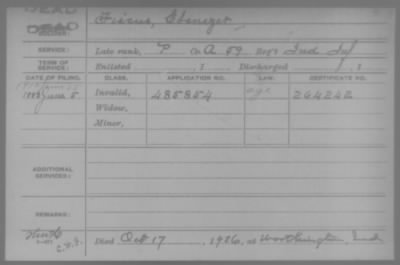 DEAD DEAD
SOLDIER: Fiscus, Ebenezer
SERVICE: Late rank, P Co. A 59 Reg't Ind Inf
TERM OF SERVICE: Enlisted , 1 Discharged , 1
DATE OF FILING. CLASS. APPLICATION NO. LAW. CERTIFICATE NO.
1883 June 5 Invalid, 485854 age 264242
Widow,
Minor,
ADDITIONAL SERVICES:
REMARKS:
C.W.
Died Oct 17 , 1926, at Worthington, Ind